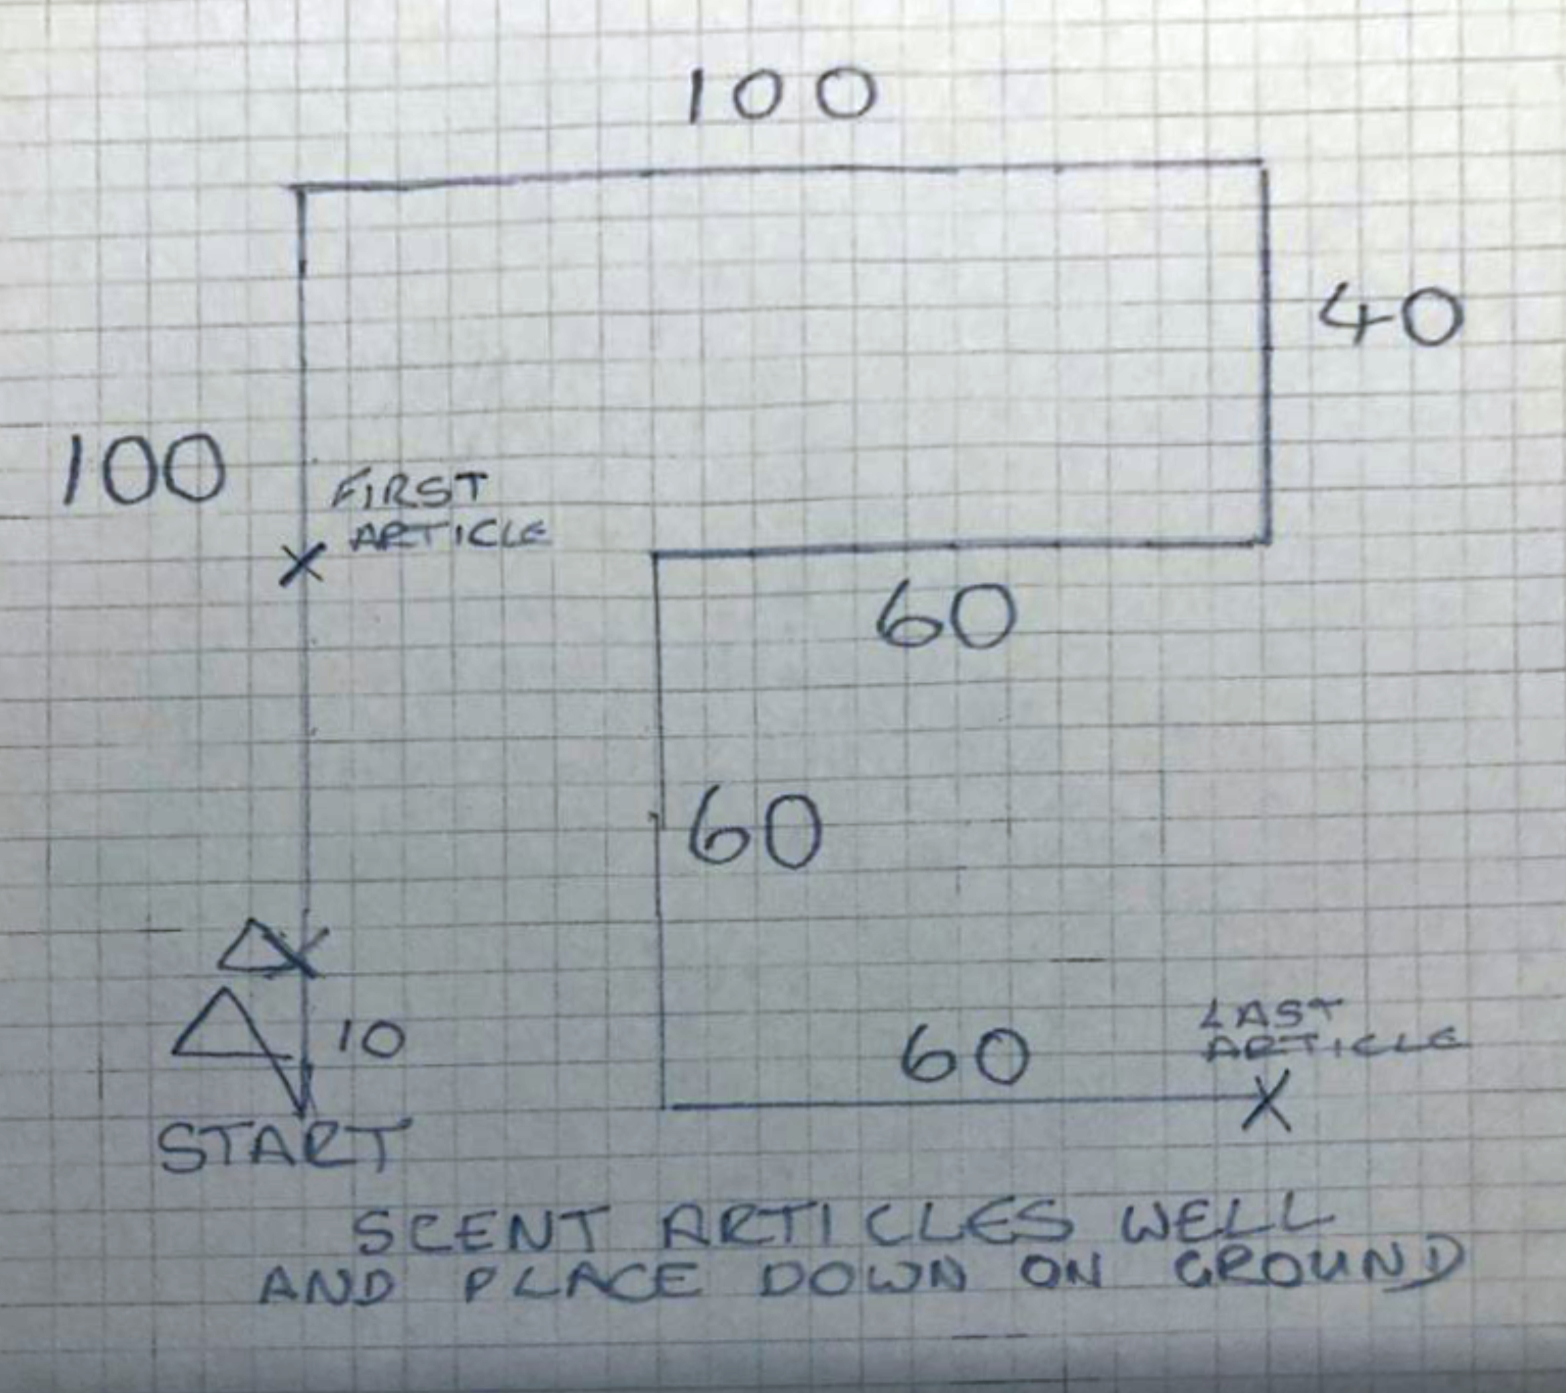 100
40
100
FIRST
ARTICLE
60
60
10
60
LAST
ARTICLE
START
SCENT ARTICLES WELL
AND PLACE DOWN ON GROUND